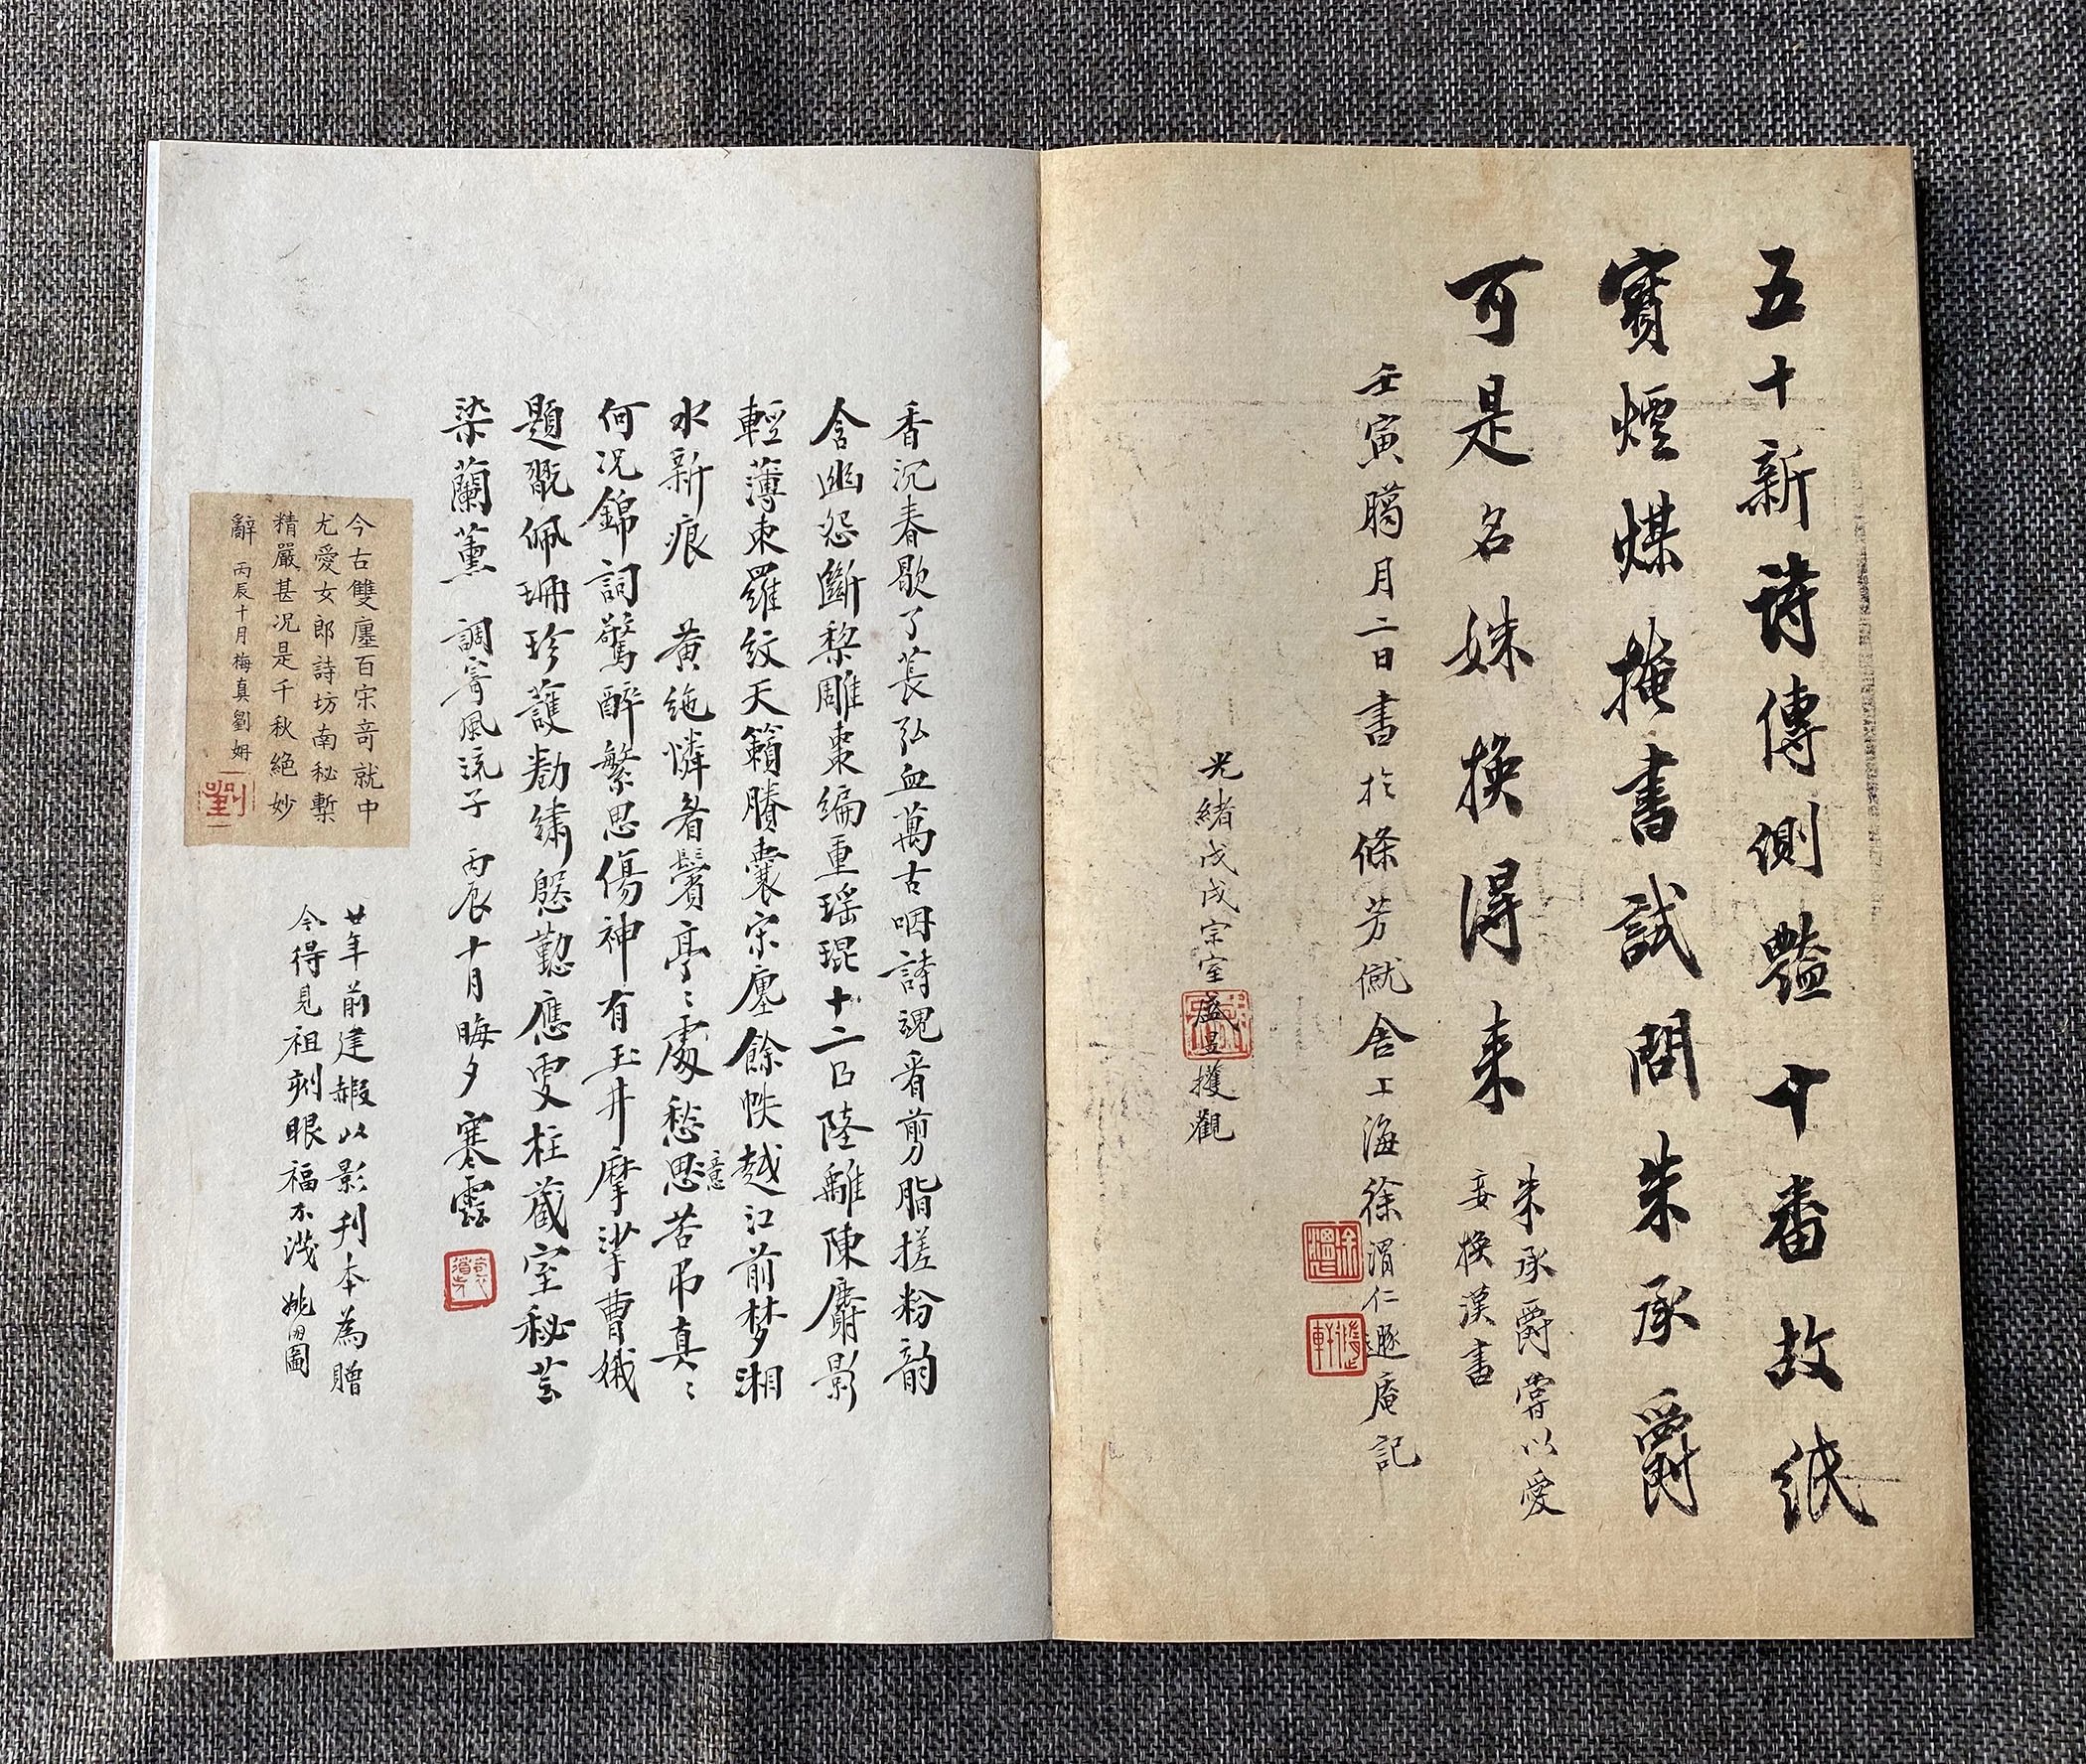 五十新詩傳側豔十番故紙
寶煙煤掩書試問朱承爵
可是名姝換得来
朱承爵嘗以愛
妾換漢書
壬寅臈月二日書於絛芳僦舍上海徐渭仁遯庵記
光緒戊戌宗室盛昱攫觀
香沉春歇了萇弘血萬古咽詩魂看剪脂搓粉韵
含幽怨斷黎雕棗編重瑶琨十二日陸離陳麝影
輕薄束羅紋天籟賸囊宋廛餘帙越江前梦湘
水新痕 黃絁憐着鬢亭亭處愁思苦弔真真
意
何况錦詞驚醉繁思傷神有玉井摩挲曹娥
題翫佩珊珍護勘繡慇懃應叓柱蕺室秘芸
染蘭薰 調寄風流子 丙辰十月晦夕寒雲
今古雙廛百宋奇就中
尤愛女郎詩坊南秘槧
精嚴甚况是千秋絕妙
辭 丙辰十月梅真劉姌
劉
廿年前建嘏以影刋本為贈
今得見祖刻眼福不淺 姚圖